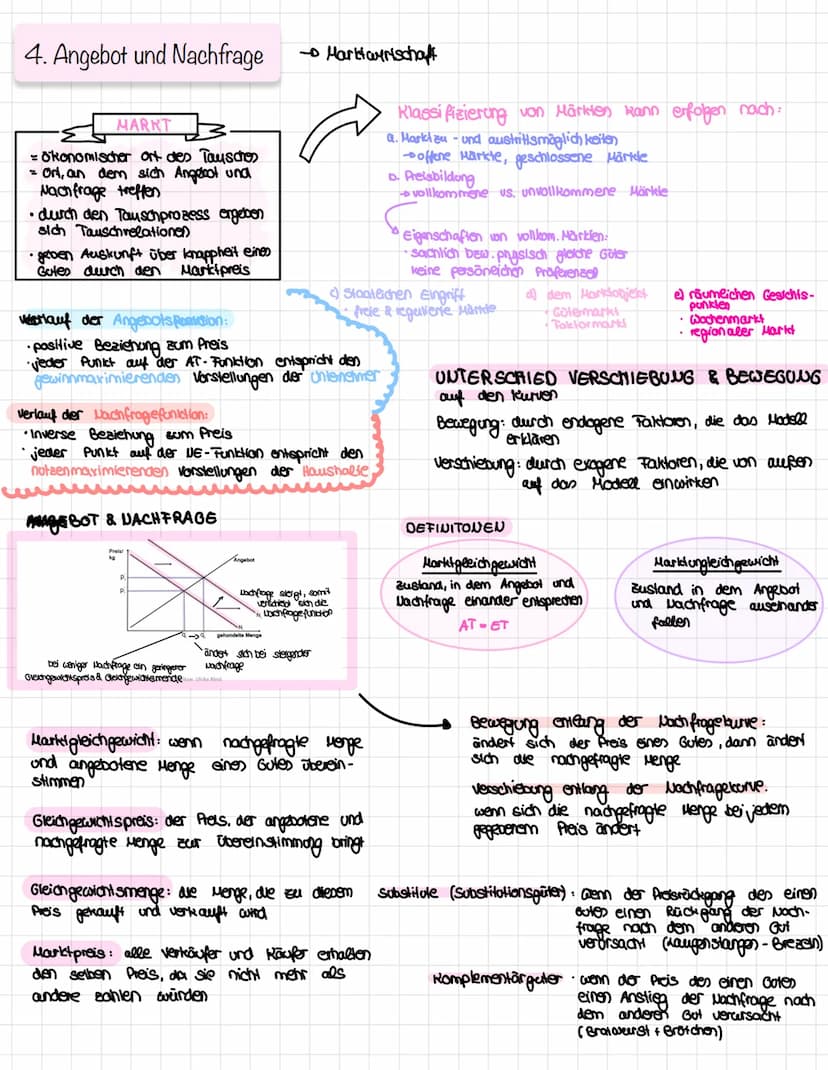 4. Angebot und Nachfrage
→ Marktwirtschaft
MARKT
= ökonomischer Ort des Tausches
= Ort, an dem sich Angebot und
Nachfrage treffen
• durch den Tauschprozess ergeben
sich Tauschrelationen
• geben Auskunft über Knappheit eines
Gutes durch den Marktpreis
Klassifizierung von Märkten kann erfolgen nach:
a. Marktzu - und austrittsmöglichkeiten
→ offene Märkte, geschlossene Märkte
b. Preisbildung
→ vollkommene vs. unvollkommene Märkte
Eigenschaften von vollkom. Märkten:
• sachlich bew. physisch gleiche Güter
keine persöneichen Präferenzen
c) Staatlichen Eingriff
• freie & regulierte Märkte
d) dem Marktobjekt
• Gütermarkt
• Faktormarkt
e) räumlichen Gesichts-
punkten
• Wochenmarkt
• regionaler Markt
Verlauf der Angebotsfunktion:
• positive Beziehung zum Preis
• jeder Punkt auf der AT-Funktion entspricht den
gewinnmaximierenden Vorstellungen der Unternehmer
Verlauf der Nachfragefunktion:
• Inverse Beziehung zum Preis
• jeder Punkt auf der NE-Funktion entspricht den
nutzenmaximierenden Vorstellungen der Haushalte
UNTERSCHIED VERSCHIEBUNG & BEWEGUNG
auf den Kurven
Bewegung: durch endogene Faktoren, die das Modell
erklären
Verschiebung: durch exogene Faktoren, die von außen
auf das Modell einwirken
ANGEBOT & NACHFRAGE
Preis/
kg
Angebot
P₁
P₀
Nachfrage steigt, somit
verschiebt sich die
Nachfragefunktion
N₁
N₀
gehandelte Menge
ändert sich bei steigender
Nachfrage
bei weniger Nachfrage ein geringerer
Gleichgewichtspreis & Gleichgewichtsmenge
DEFINITONEN
Marktgleichgewicht
Zustand, in dem Angebot und
Nachfrage einander entsprechen
AT = ET
Marktungleichgewicht
Zustand in dem Angebot
und Nachfrage auseinander
fallen
Marktgleichgewicht: wenn nachgefragte Menge
und angebotene Menge eines Gutes überein-
stimmen
Gleichgewichtspreis: der Preis, der angebotene und
nachgefragte Menge zur Übereinstimmung bringt
Gleichgewichtsmenge: die Menge, die zu diesem
Preis gekauft und verkauft wird
Marktpreis: alle Verkäufer und Käufer erhalten
den selben Preis, da sie nicht mehr als
andere zahlen würden
Bewegung entlang der Nachfragekurve:
ändert sich der Preis eines Gutes, dann ändert
sich die nachgefragte Menge
Verschiebung entlang der Nachfragekurve.
wenn sich die nachgefragte Menge bei jedem
gegebenem Preis ändert
Substitute (Substitutionsgüter): Wenn der Preisrückgang des einen
Gutes einen Rückgang der Nach-
frage nach dem anderen Gut
verursacht (Laugenstangen - Brezeln)
Komplementärgüter • wenn der Preis des einen Gutes
einen Anstieg der Nachfrage nach
dem anderen Gut verursacht
(Bratwurst + Brötchen)